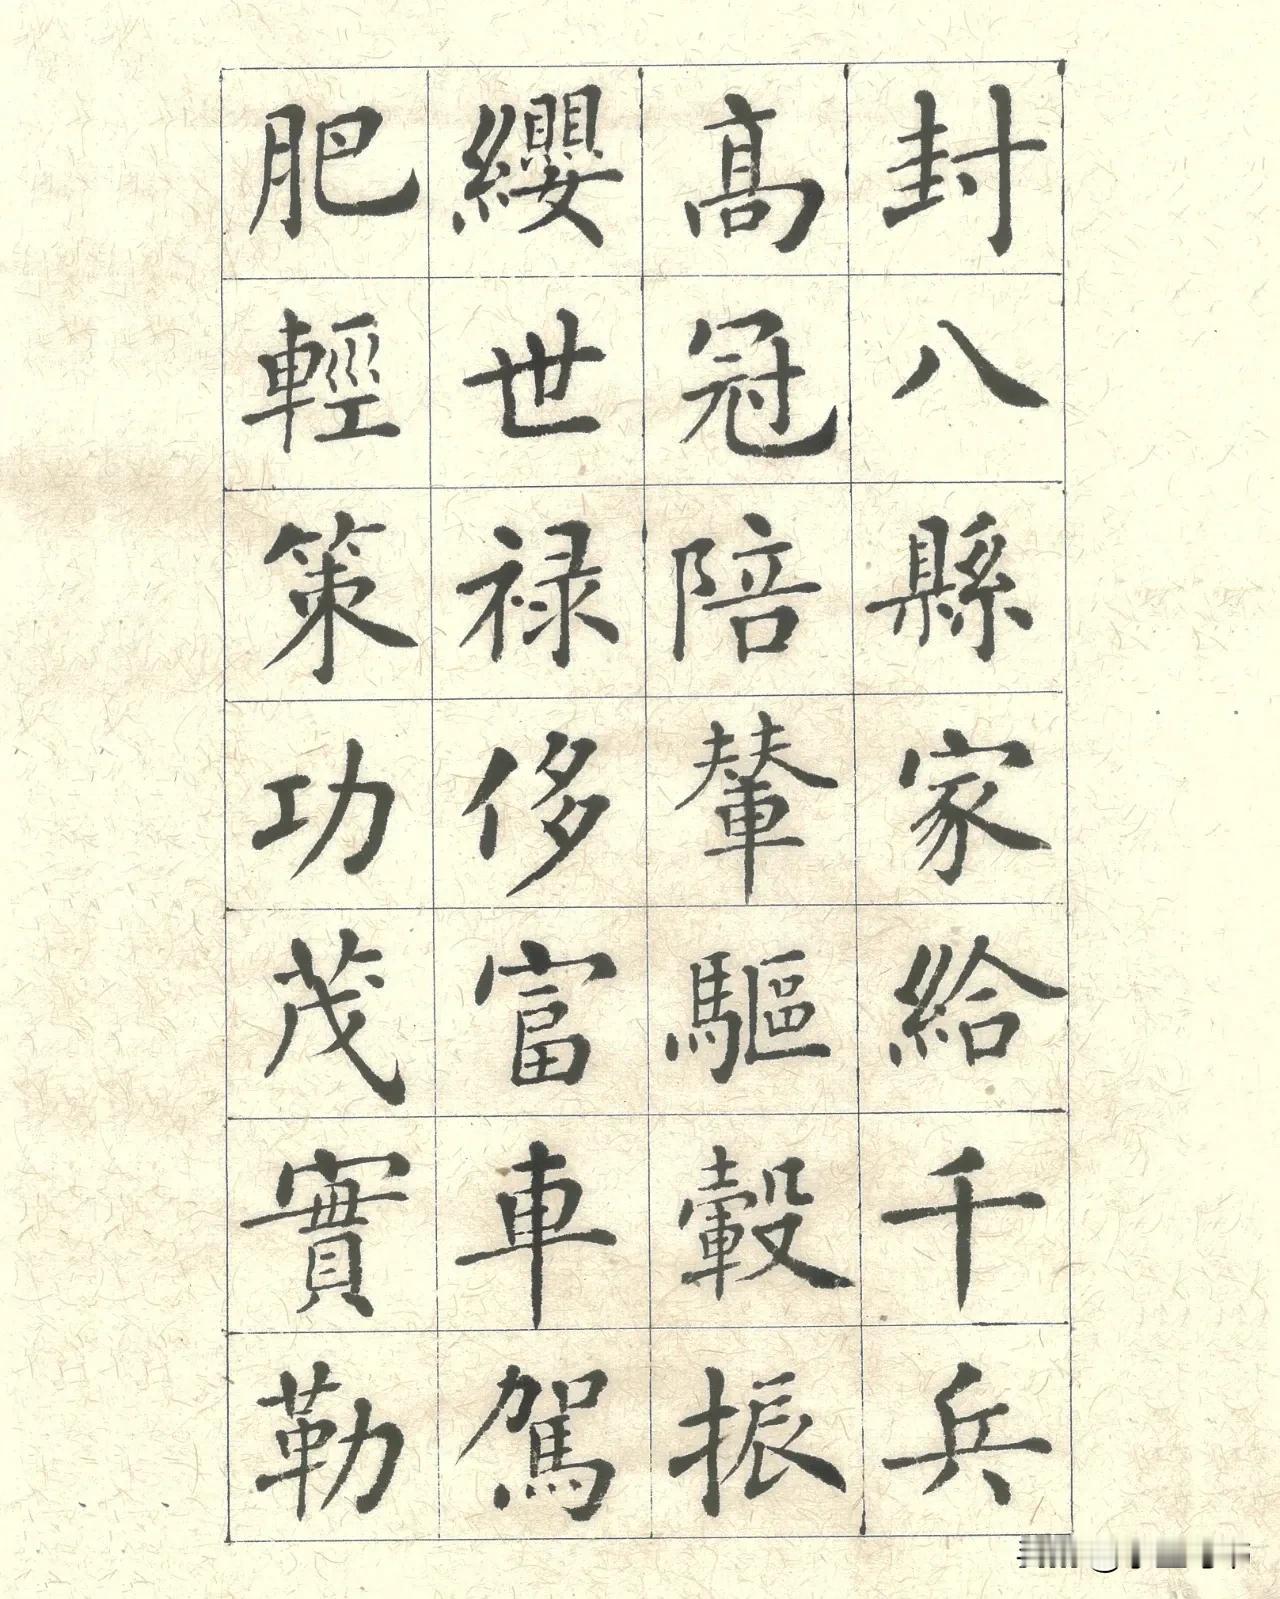 封八縣家給千兵
高冠陪輦驅轂振
纓世禄侈富車駕
肥輕策功茂實勒